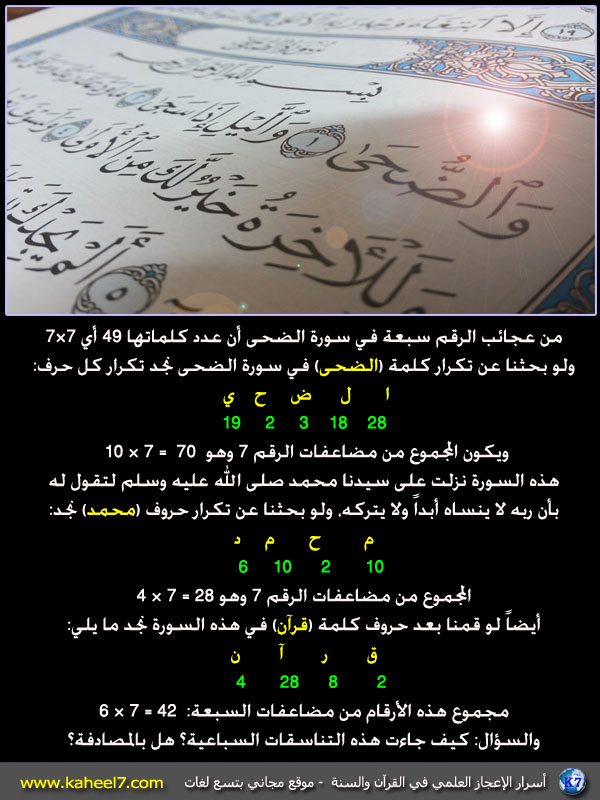 إِلَّا ٱبۡتِغَآءَ
١٩
بِسۡمِ ٱللَّهِ ٱلرَّحۡمَٰنِ ٱلرَّحِيمِ
وَٱلضُّحَىٰ ١ وَٱلَّيۡلِ إِذَا سَجَىٰ ٢
خَيۡرٞ لَّكَ مِنَ ٱلۡأُولَىٰ ٤
٥ أَلَمۡ يَجِدۡكَ
من عجائب الرقم سبعة في سورة الضحى أن عدد كلماتها 49 أي 7×7
ولو بحثنا عن تكرار كلمة (الضحى) في سورة الضحى نجد تكرار كل حرف:
ا ل ض ح ي
28 18 3 2 19
ويكون المجموع من مضاعفات الرقم 7 وهو 70 = 7 × 10
هذه السورة نزلت على سيدنا محمد صلى الله عليه وسلم لتقول له
بأن ربه لا ينساه أبداً ولا يتركه، ولو بحثنا عن تكرار حروف (محمد) نجد:
م ح م د
10 2 10 6
المجموع من مضاعفات الرقم 7 وهو 28 = 7 × 4
أيضاً لو قمنا بعد حروف كلمة (قرآن) في هذه السورة نجد ما يلي:
ق ر آ ن
2 8 28 4
مجموع هذه الأرقام من مضاعفات السبعة: 42 = 7 × 6
والسؤال: كيف جاءت هذه التناسقات السباعية؟ هل بالمصادفة؟
K7 أسرار الإعجاز العلمي في القرآن والسنة - موقع مجاني بتسع لغات www.kaheel7.com